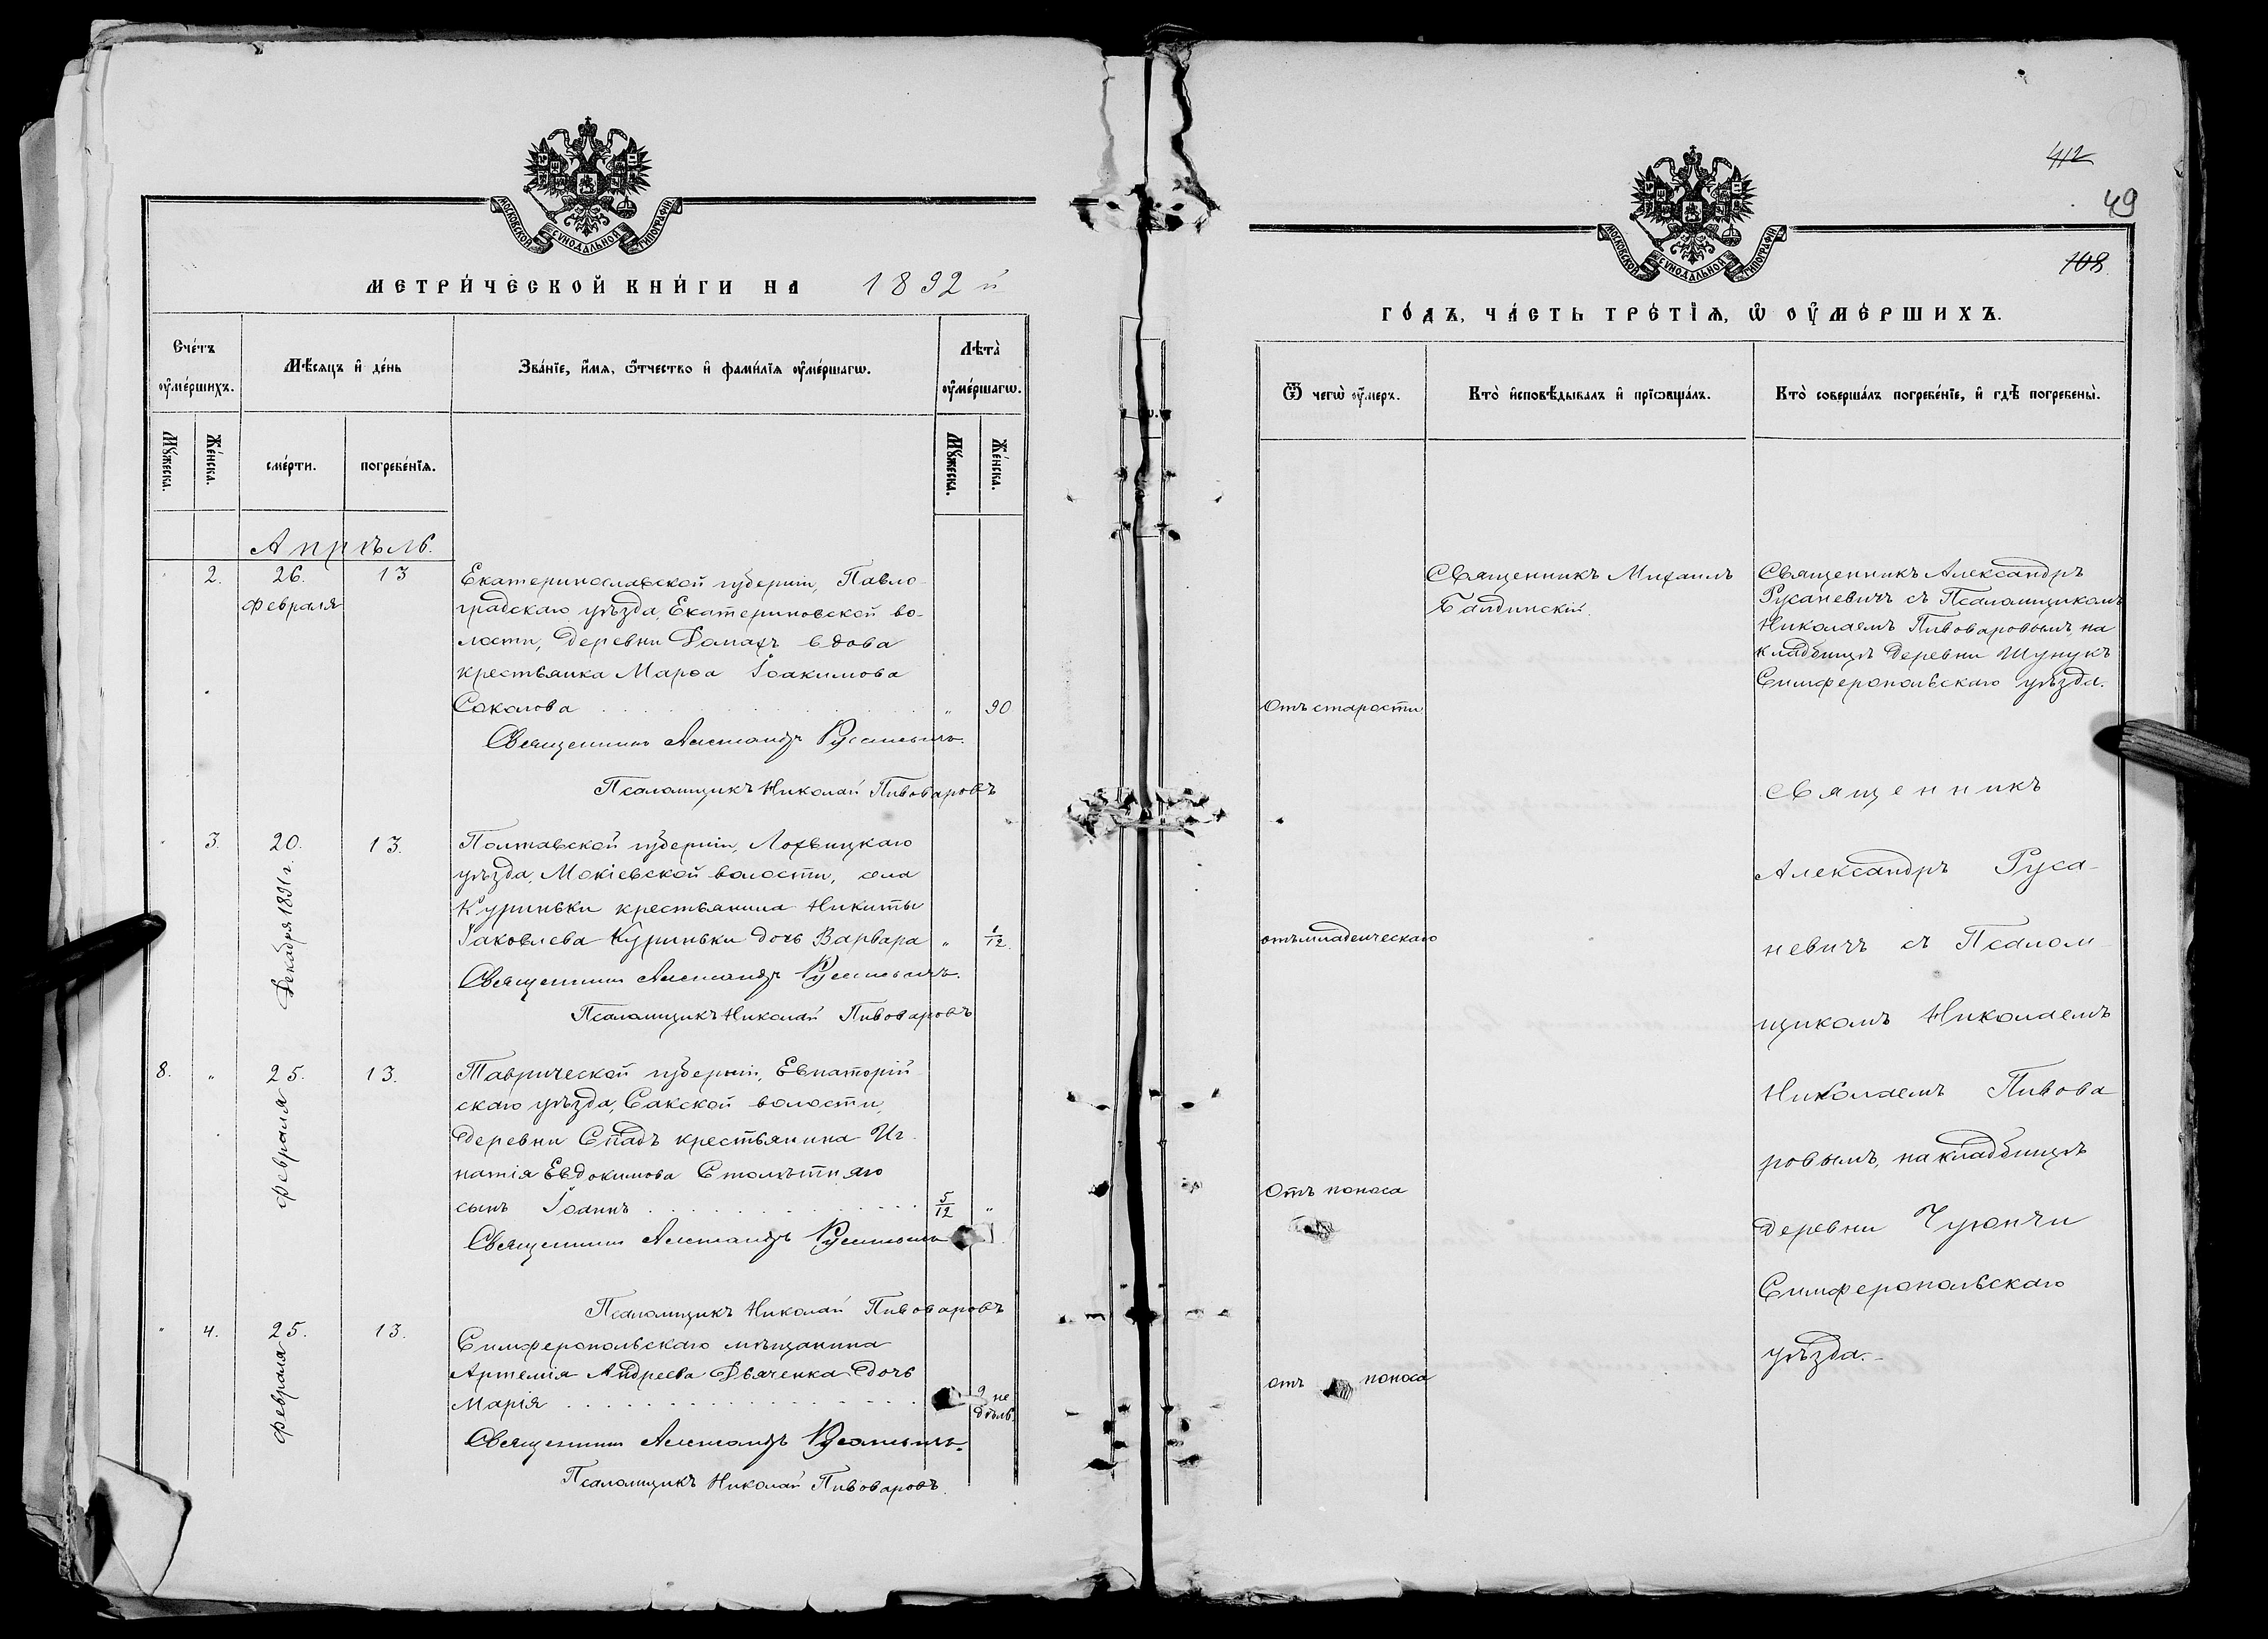 МОСКОВСКОЙ СѴНОДАЛЬНОЙ ТИПОГРАФІИ
МЕТРИ́ЧЕСКОЙ КНИ́ГИ НА 1892 й
Сче́тъ ᲂу҆ме́ршихъ.
Мѣ́сяцъ и҆ де́нь
Зва́нїе, и҆́мѧ, ѻ҆́тчество и҆ фами́лїѧ ᲂу҆ме́ршагѡ.
Лѣта̀ ᲂу҆ме́ршагѡ.
Мꙋ́жеска.
Же́нска.
сме́рти.
погребе́нїѧ.
Мꙋ́жеска.
Же́нска.
Апрѣль.
2.
26. февраля
13
Екатеринославской губерніи, Павло-
градскаго уѣзда, Екатериновской во-
лости, деревни Домахъ вдова
крестьянка Марѳа Іоакимова
Соколова „ 90
Священникъ Александръ Русаневичъ.
Псаломщикъ Николай Пивоваровъ
3.
20. Декабря 1891 г.
13.
Полтавской губерніи, Лохвицкаго
уѣзда, Мокіевской волости, села
Куриньки крестьянина Никиты
Іаковлева Куриньки дочь Варвара „ 1/12.
Священникъ Александръ Русаневичъ.
Псаломщикъ Николай Пивоваровъ
8. „
25. февраля
13.
Таврической губерніи, Евпаторій-
скаго уѣзда, Сакской волости,
деревни Спадъ крестьянина Иг-
натія Евдокимова Столѣтняго
сынъ Іоаннъ 5/12 „
Священникъ Александръ Русаневичъ
Псаломщикъ Николай Пивоваровъ
„ 4.
25. февраля
13.
Симферопольскаго мѣщанина
Артемія Андреева Дьяченка дочь
Марія не
дѣль.
Священникъ Александръ Русаневичъ.
Псаломщикъ Николай Пивоваровъ.
412
49
108.
МОСКОВСКОЙ СѴНОДАЛЬНОЙ ТИПОГРАФІИ
ГО́ДЪ, ЧА́СТЬ ТРЕ́ТЇѦ, Ѡ҆ ОУ҆МЕ́РШИХЪ.
Ѿ чегѡ̀ ᲂу҆́меръ.
Кто̀ и҆сповѣ́дывалъ и҆ прїѡбща́лъ.
Кто̀ соверша́лъ погребе́нїе, и҆ гдѣ̀ погребены̀.
Отъ старости
Священникъ Михаилъ
Балдинскій.
Священникъ Александръ
Русаневичъ съ Псаломщикомъ
Николаемъ Пивоваровымъ, на
кладбищѣ деревни Шунукъ
Симферопольскаго уѣзда.
отъ младенческаго
Отъ поноса
отъ поноса
священникъ
Александръ Руса-
невичъ съ Псалом
щикомъ Николаемъ
Николаемъ Пивова
ровымъ, на кладбищѣ
деревни Чуюнчи
Симферопольскаго
уѣзда.